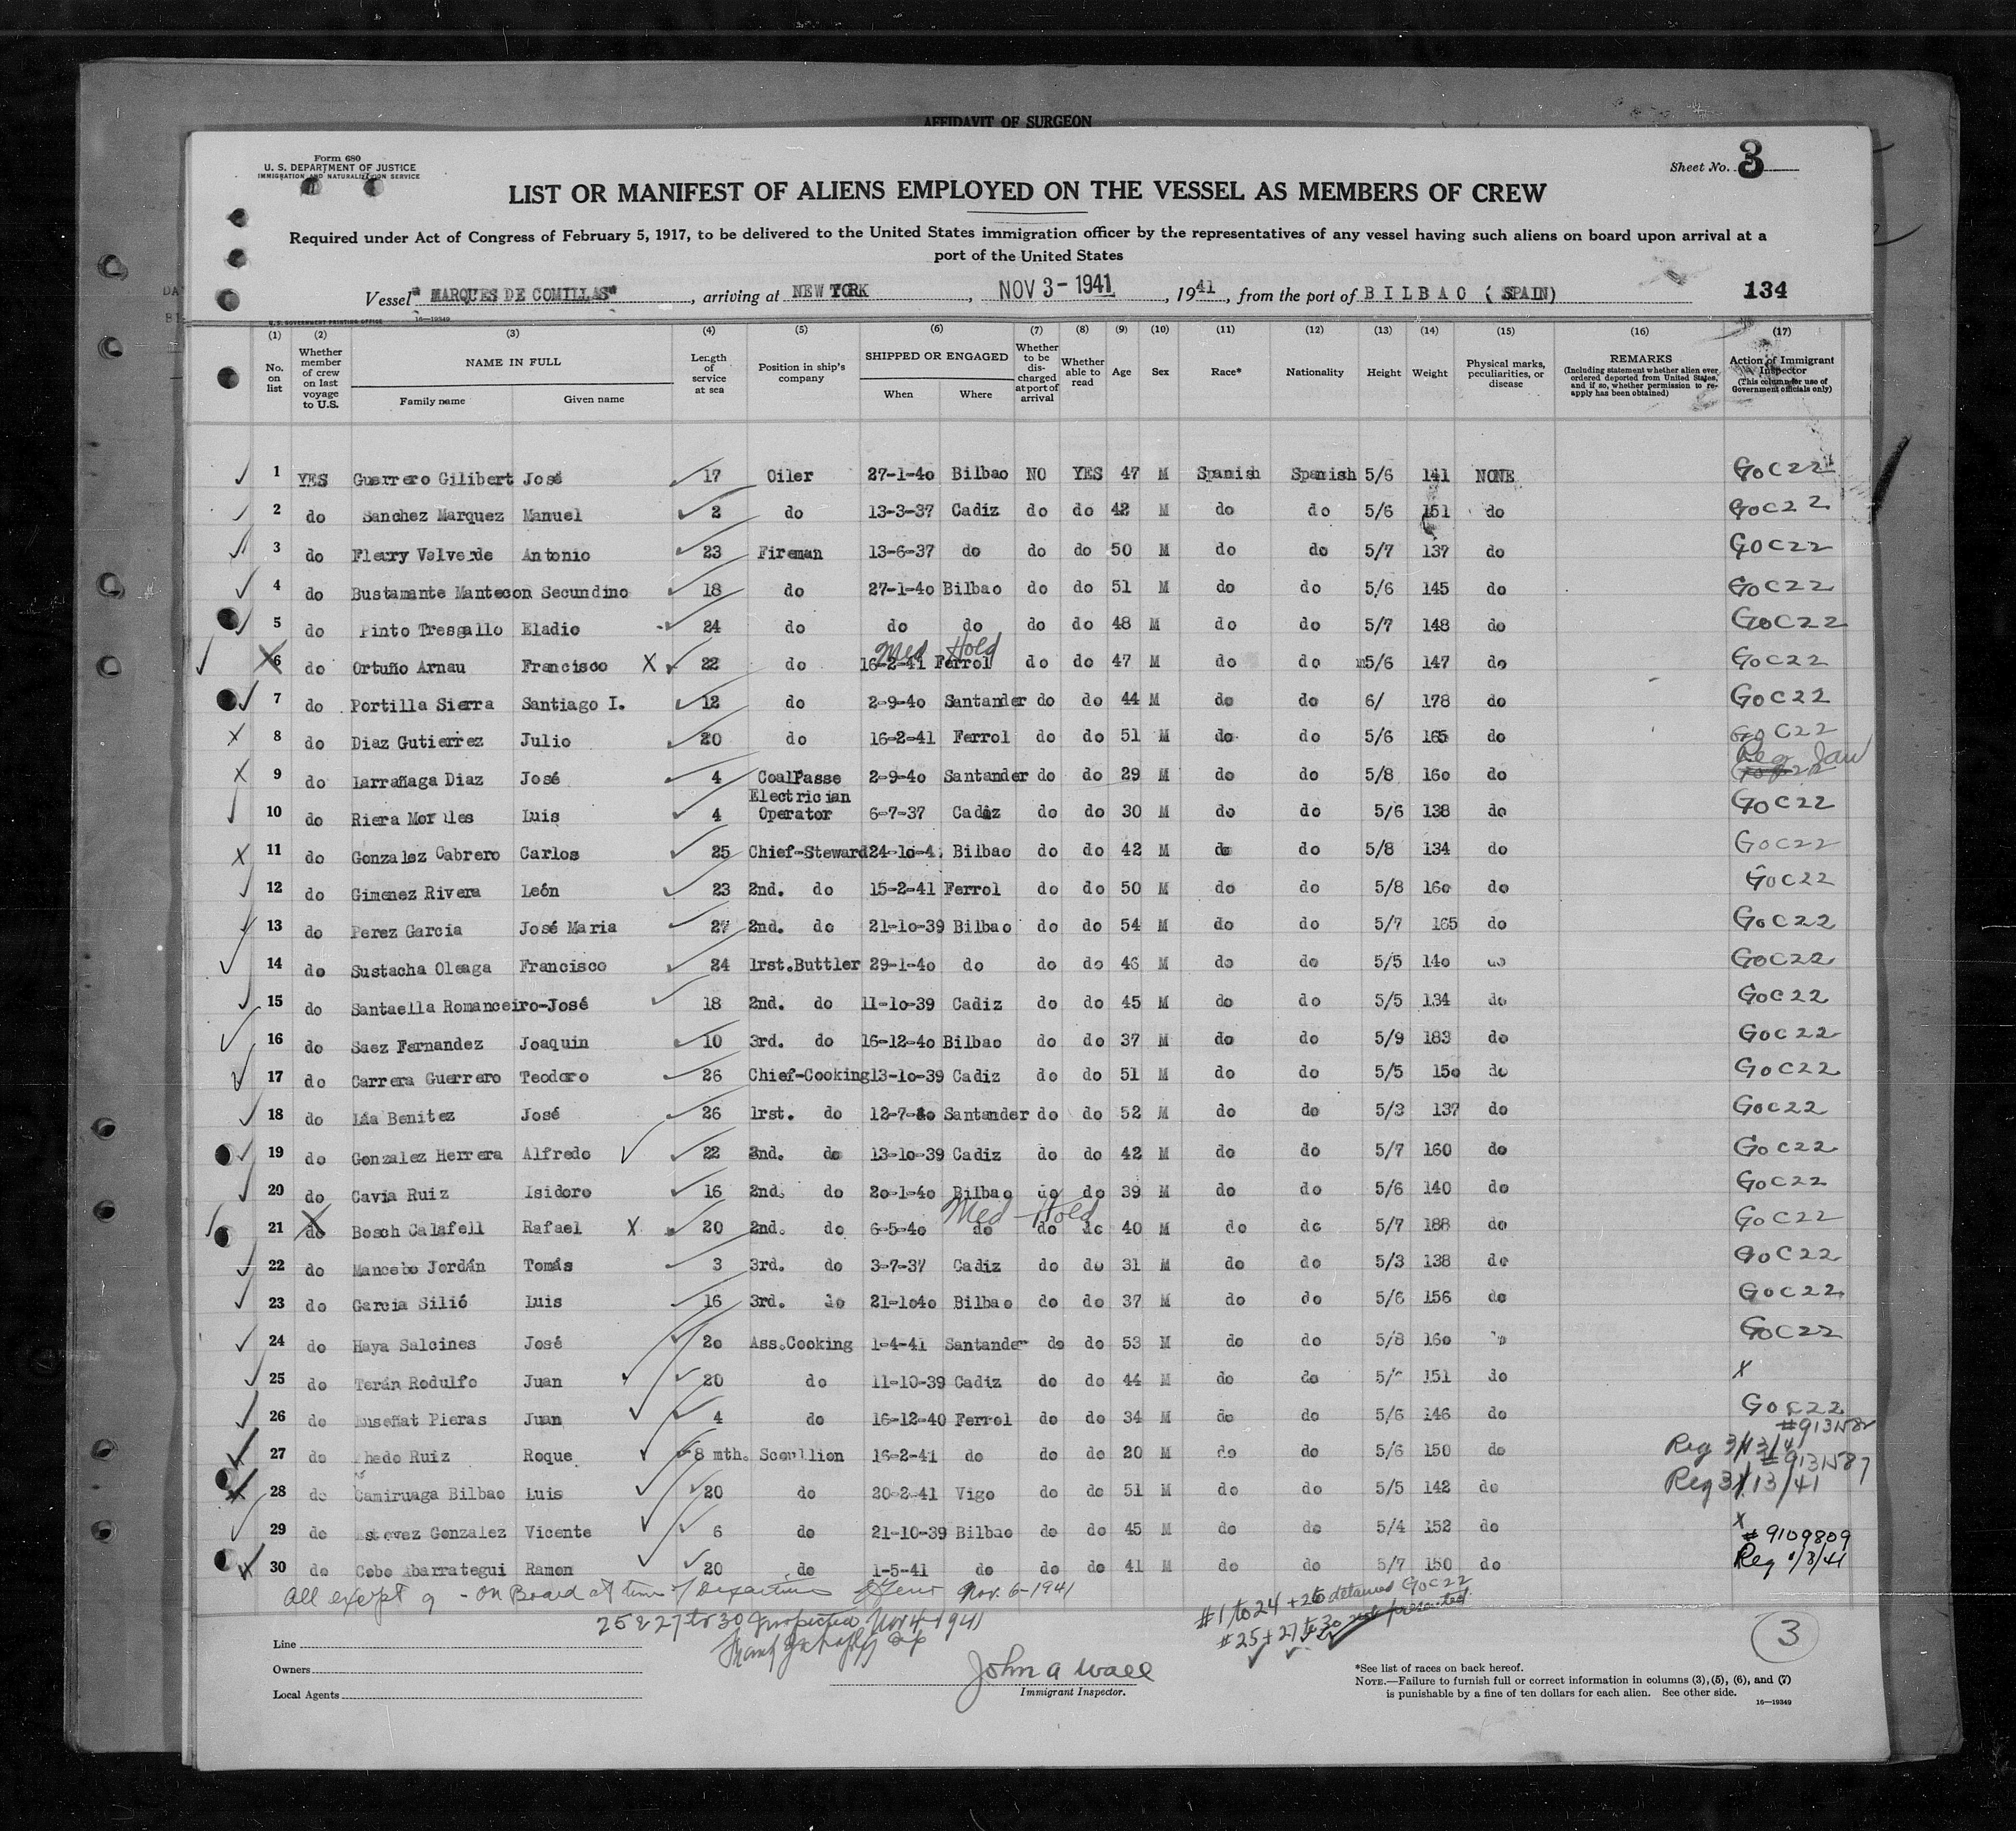 AFFIDAVIT OF SURGEON
Form 680
U. S. DEPARTMENT OF JUSTICE
IMMIGRATION AND NATURALIZATION SERVICE
Sheet No. 3
LIST OR MANIFEST OF ALIENS EMPLOYED ON THE VESSEL AS MEMBERS OF CREW
Required under Act of Congress of February 5, 1917, to be delivered to the United States immigration officer by the representatives of any vessel having such aliens on board upon arrival at a
port of the United States
Vessel "MARQUES DE COMILLAS", arriving at NEW YORK, NOV 3-1941, 1941, from the port of BILBAO (SPAIN) 134
U. S. GOVERNMENT PRINTING OFFICE 16—19349
(1) (2) (3) (4) (5) (6) (7) (8) (9) (10) (11) (12) (13) (14) (15) (16) (17)
No. on list
Whether member of crew on last voyage to U.S.
NAME IN FULL
Family name Given name
Length of service at sea
Position in ship's company
SHIPPED OR ENGAGED
When Where
Whether to be discharged at port of arrival
Whether able to read
Age
Sex
Race*
Nationality
Height
Weight
Physical marks, peculiarities, or disease
REMARKS
(Including statement whether alien ever ordered deported from United States, and if so, whether permission to reapply has been obtained)
Action of Immigrant Inspector
(This column for use of Government officials only)
1 YES Guerrero Gilibert José 17 Oiler 27-1-40 Bilbao NO YES 47 M Spanish Spanish 5/6 141 NONE GOC22
2 do Sanchez Marquez Manuel 2 do 13-3-37 Cadiz do do 42 M do do 5/6 151 do GOC22
3 do Fleury Velverde Antonio 23 Fireman 13-6-37 do do do 50 M do do 5/7 137 do GOC22
4 do Bustamante Mantecon Secundino 18 do 27-1-40 Bilbao do do 51 M do do 5/6 145 do GOC22
5 do Pinto Tresgallo Eladio 24 do do do do do 48 M do do 5/7 148 do GOC22
Med Hold
6 do Ortuño Arnau Francisco X 22 do 16-2-41 Ferrol do do 47 M do do 5/6 147 do GOC22
7 do Portilla Sierra Santiago I. 12 do 2-9-40 Santander do do 44 M do do 6/ 178 do GOC22
8 do Diaz Gutierrez Julio 20 do 16-2-41 Ferrol do do 51 M do do 5/6 165 do GOC22
9 do Larrañaga Diaz José 4 CoalPasse 2-9-40 Santander do do 29 M do do 5/8 160 do
10 do Riera Morales Luis 4 Electrician Operator 6-7-37 Cadiz do do 30 M do do 5/6 138 do GOC22
11 do Gonzalez Cabrero Carlos 25 Chief-Steward 24-10-4. Bilbao do do 42 M do do 5/8 134 do GOC22
12 do Gimenez Rivera León 23 2nd. do 15-2-41 Ferrol do do 50 M do do 5/8 160 do GOC22
13 do Perez Garcia José Maria 27 2nd. do 21-10-39 Bilbao do do 54 M do do 5/7 165 do GOC22
14 do Sustacha Oleaga Francisco 24 1rst.Buttler 29-1-40 do do do 46 M do do 5/5 140 do GOC22
15 do Santaella Romanceiro-José 18 2nd. do 11-10-39 Cadiz do do 45 M do do 5/5 134 do GOC22
16 do Saez Fernandez Joaquin 10 3rd. do 16-12-40 Bilbao do do 37 M do do 5/9 183 do GOC22
17 do Carrera Guerrero Teodoro 26 Chief-Cooking 13-10-39 Cadiz do do 51 M do do 5/5 150 do GOC22
18 do Láa Benitez José 26 1rst. do 12-7-40 Santander do do 52 M do do 5/3 137 do GOC22
19 do Gonzalez Herrera Alfredo 22 2nd. do 13-10-39 Cadiz do do 42 M do do 5/7 160 do GOC22
20 do Cavia Ruiz Isidoro 16 2nd. do 20-1-40 Bilbao do do 39 M do do 5/6 140 do GOC22
Med Hold
21 do Bosch Calafell Rafael X 20 2nd. do 6-5-40 do do do 40 M do do 5/7 188 do GOC22
22 do Mancebo Jordán Tomás 3 3rd. do 3-7-37 Cadiz do do 31 M do do 5/3 138 do GOC22
23 do Garcia Silió Luis 16 3rd. do 21-1040 Bilbao do do 37 M do do 5/6 156 do GOC22
24 do Haya Salcines José 20 Ass.Cooking 1-4-41 Santander do do 53 M do do 5/8 160 do GOC22
25 do Terán Rodulfo Juan 20 do 11-10-39 Cadiz do do 44 M do do 5/ 151 do X
26 do Juan 4 do 16-12-40 Ferrol do do 34 M do do 5/6 146 do GOC22
27 do Ruiz Roque 8 mth. Scoullion 16-2-41 do do do 20 M do do 5/6 150 do #913158 Reg 3/13/41
28 do Camiruaga Bilbao Luis 20 do 20-2-41 Vigo do do 51 M do do 5/5 142 do #9131587 Reg 3/13/41
29 do Estevez Gonzalez Vicente 6 do 21-10-39 Bilbao do do 45 M do do 5/4 152 do X
30 do Cobo Abarrategui Ramon 20 do 1-5-41 do do do 41 M do do 5/7 150 do #9109809 Reg 1/3/41
All except 9 - On Board at time of Departure Nov. 6-1941
25 & 27 to 30 Inspected Nov 4 1941
#1 to 24 + 26 detained GOC22
#25 + 27 to 30 not presented
3
Line
Owners
Local Agents
John A Wall
Immigrant Inspector.
*See list of races on back hereof.
NOTE.—Failure to furnish full or correct information in columns (3), (5), (6), and (7)
is punishable by a fine of ten dollars for each alien. See other side.
16—19349